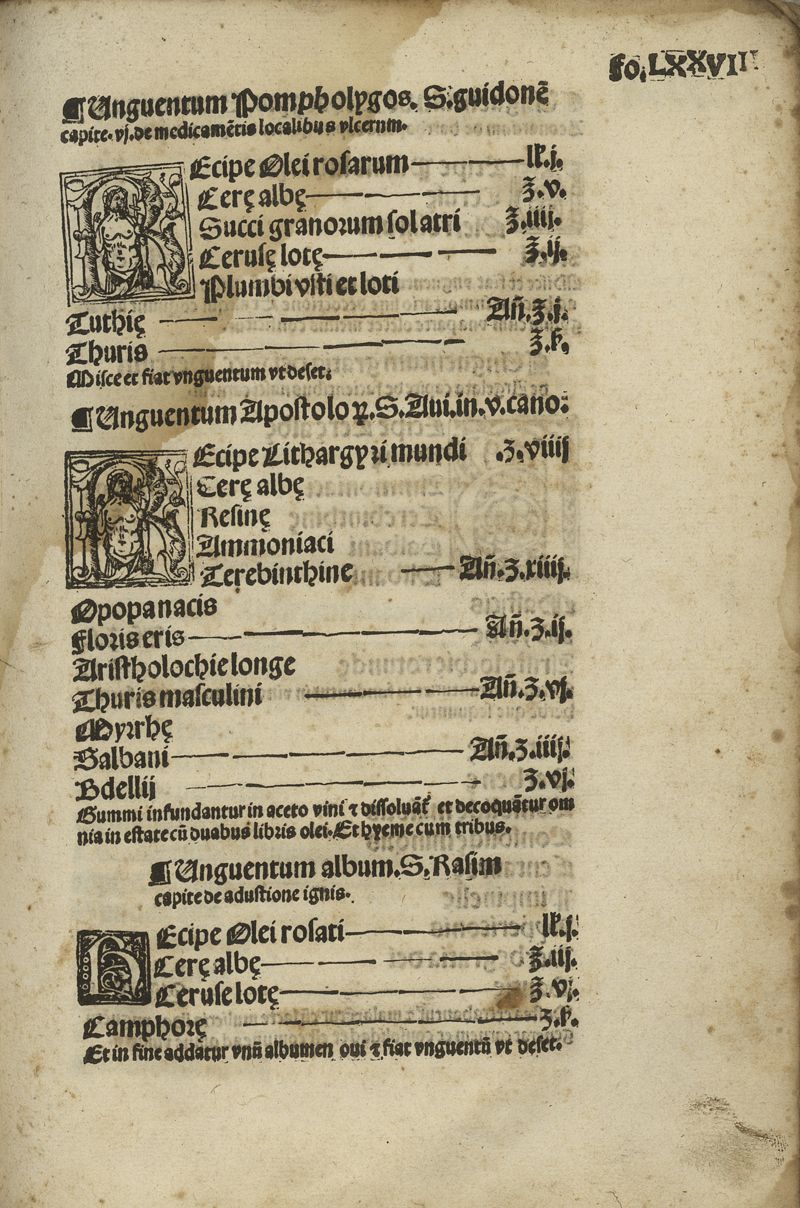 fo. LXXVII
¶Unguentum Pompholygos. S. guidonē
capite. vj. de medicamētis localibus vlcerum.
REcipe Olei rosarum lb. j.
Cerę albę ℥. v.
Succi granorum solatri ℥. iiij.
Cerusę lotę ℥. ij.
Plumbi vsti et loti
Tuthię Añ. ℥. j.
Thuris ℥. ß.
Misce et fiat vnguentum vt decet.
¶Unguentum Apostoloꝝ. S. Aui. in. v. cano:
REcipe Lithargyri mundi .ʒ. viiij
Cerę albę
Resinę
Ammoniaci
Terebinthine Añ. ʒ. xiiij.
Opopanacis
Floris eris Añ. ʒ. ij.
Aristholochie longe
Thuris masculini Añ. ʒ. vj.
Myrrhę
Galbani Añ. ʒ. iiij.
Bdellij ʒ. vj.
Gummi infundantur in aceto vini ⁊ dissoluāt᷑ et decoquātur om
nia in estate cū duabus libris olei. Et hyeme cum tribus.
¶Unguentum album. S. Rasim
capite de adustione ignis.
REcipe Olei rosati lb. j.
Cerę albę ℥. iij.
Ceruse lotę ℥. vj.
Camphorę ʒ. ß.
Et in fine addatur vnū albumen oui ⁊ fiat vnguentū vt decet.